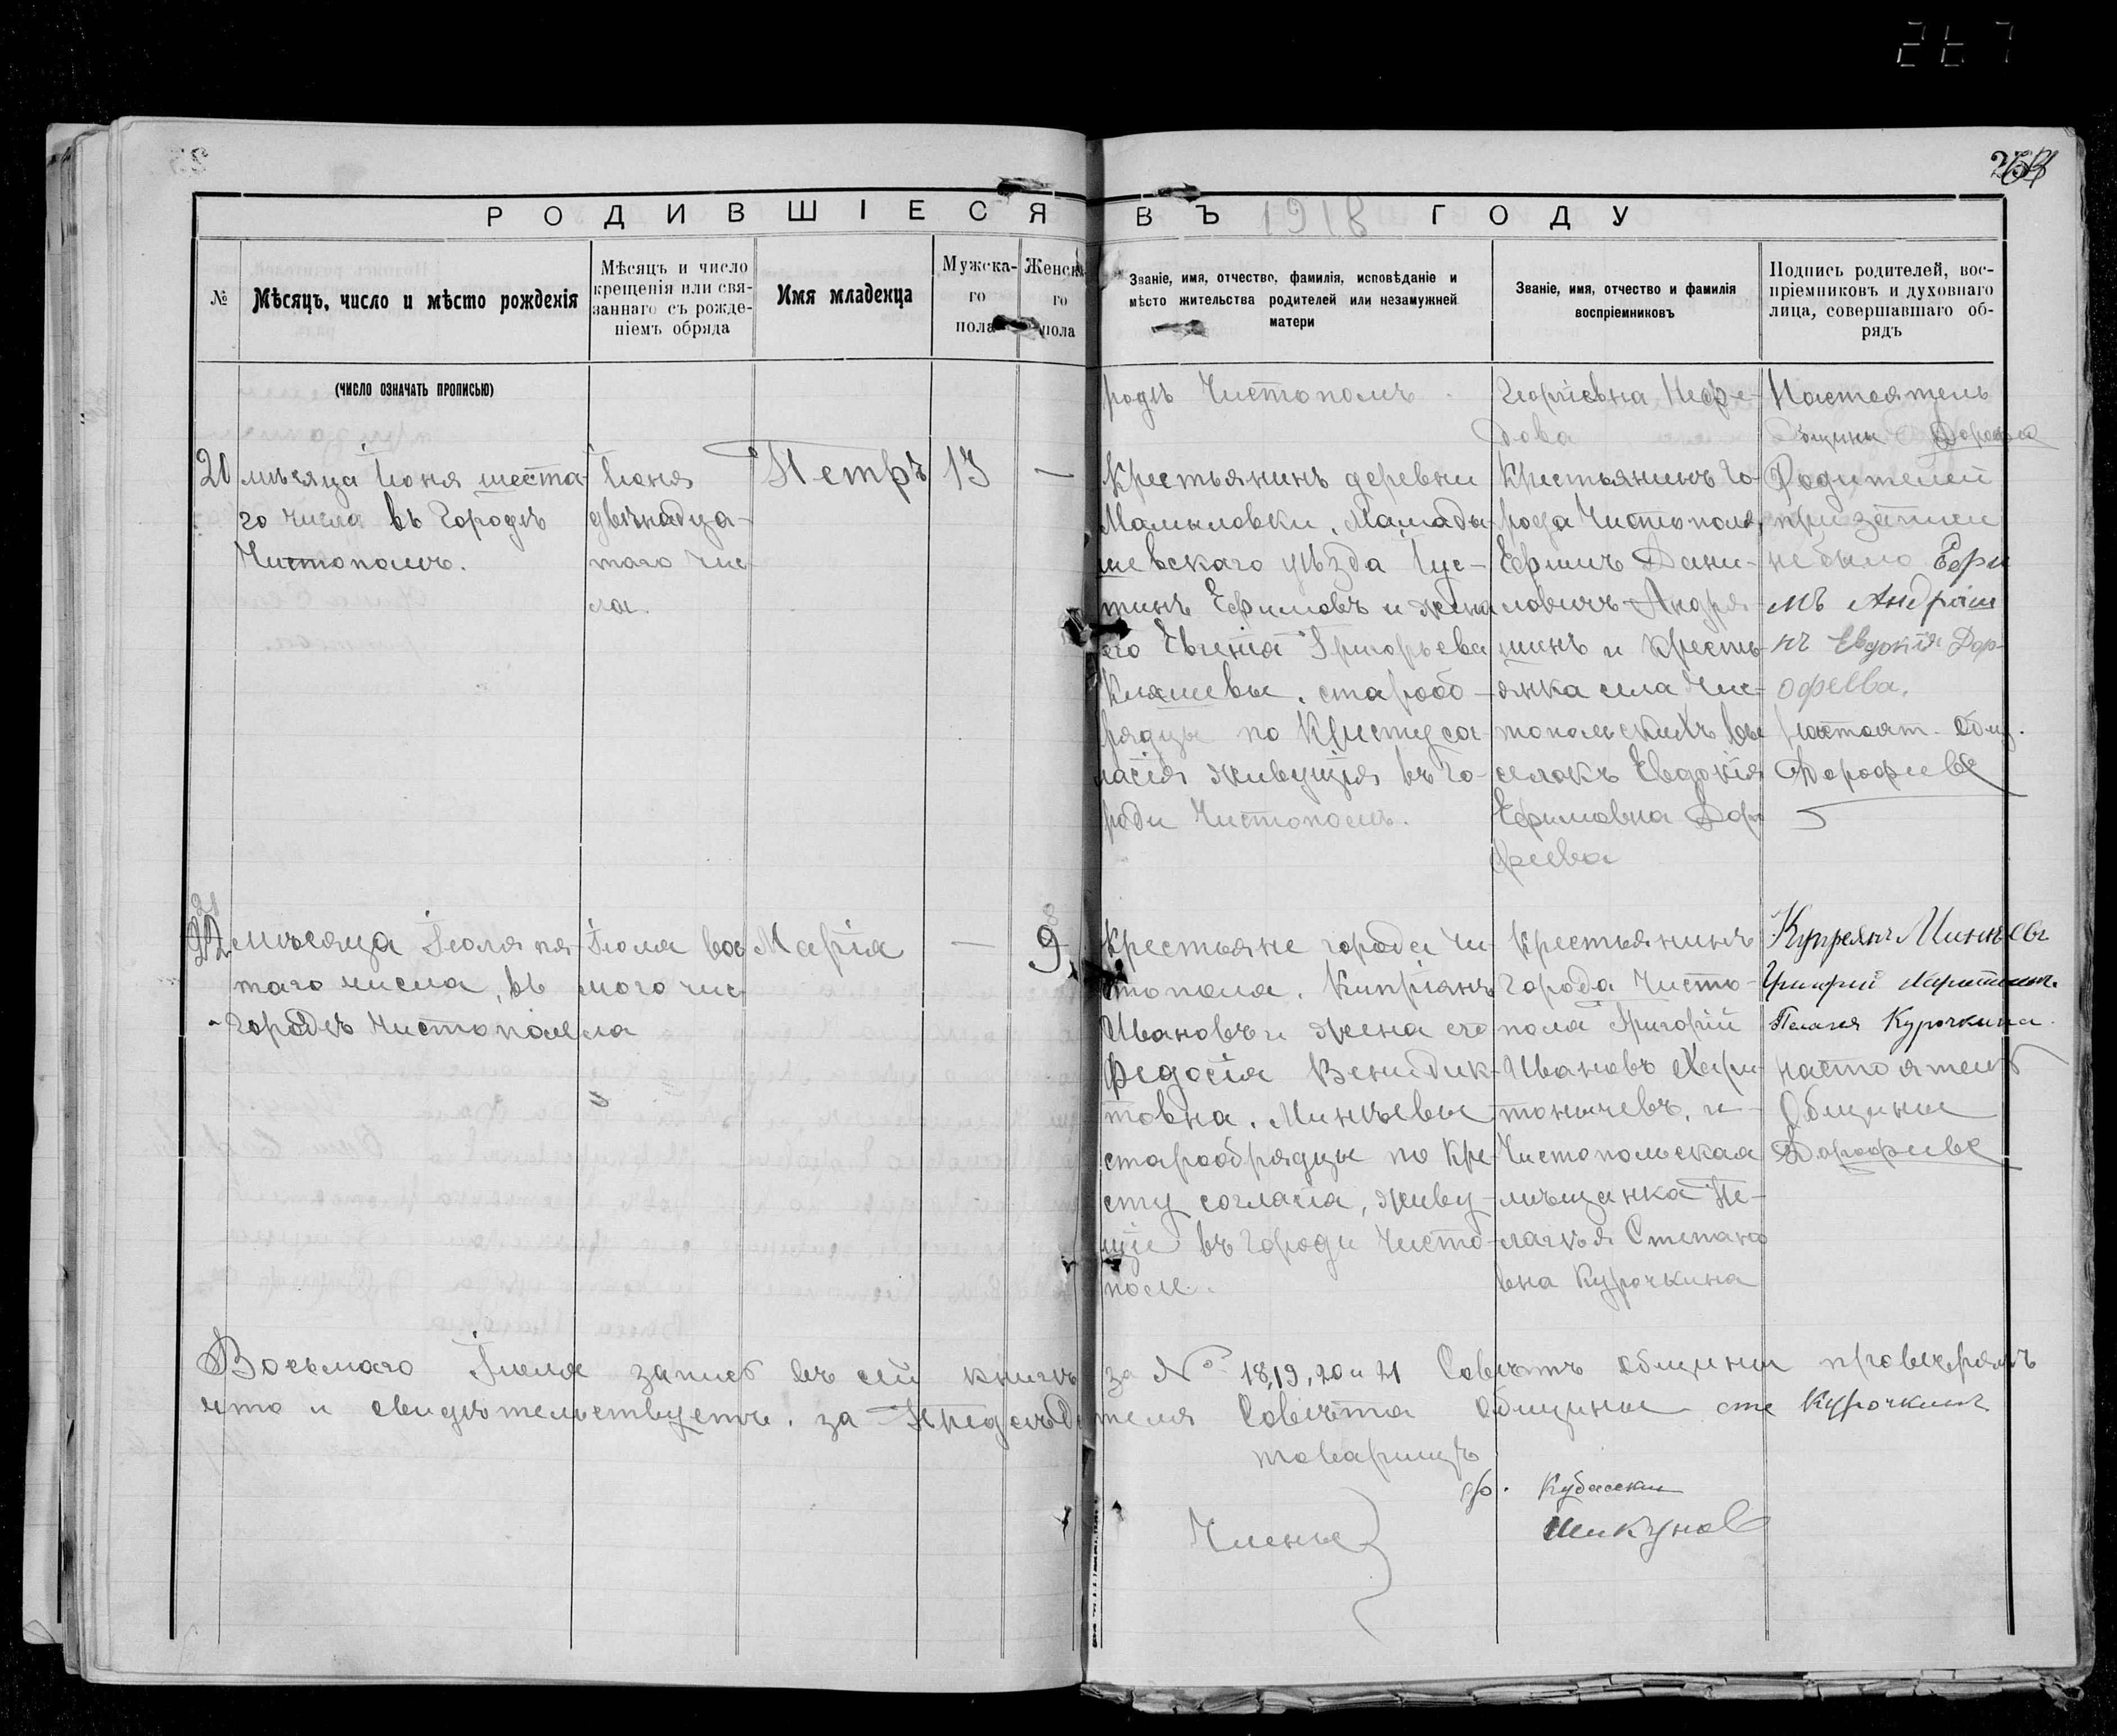 РОДИВШІЕСЯ ВЪ 1918 ГОДУ
№
Мѣсяцъ, число и мѣсто рожденія
Мѣсяцъ и число
крещенія или свя-
заннаго съ рожде-
ніемъ обряда
Имя младенца
Мужска-
го
пола
Женска-
го
пола
Званіе, имя, отчество, фамилія, исповѣданіе и
мѣсто жительства родителей или незамужней
матери
Званіе, имя, отчество и фамилія
воспріемниковъ
Подпись родителей, вос-
пріемниковъ и духовнаго
лица, совершавшаго об-
рядъ
(ЧИСЛО ОЗНАЧАТЬ ПРОПИСЬЮ)
родѣ Чистополѣ.
Георгіевна
дова
Настоятель
общины
20
мѣсяца Іюня шеста-
го числа въ Городѣ
Чистополѣ.
Іюня
двѣнадца-
таго чис-
ла.
Петръ
13
—
Крестьянинъ деревни
Мамыловки, Мамады-
шевскаго уѣзда Іус-
тинъ Ефимовъ и жена
его Евгенія Григорьева
старооб-
рядцы по Кресту со-
гласія живущія въ Го-
роди Чистополь.
Крестьянинъ Го-
рода Чистополя,
Ефимъ Дани-
ловичъ Андря-
шинъ и кресть-
янка села Чис-
топольскихъ вы-
селокъ Евдокія
Ефимовна Доро-
феева
Родителей
при записи
не было Ефи
мъ Андряши
нъ Евдокія Дор-
офеева.
настоят. общ.
Дорофеевъ
21
мѣсяца Іюля пя-
таго числа, въ
городѣ Чистополѣ
Іюля вось
мого чис-
ла
Марія
—
9
8
Крестьяне города Чи-
стополя. Кипріянъ
Ивановъ и жена его
Федосія Венидик-
товна. Минѣевы
старообрядцы по Кре-
сту согласія, живу-
щіе въ городи Чисто-
поле.
Крестьянинъ
Города Чисто-
поля Григорій
Ивановъ Хари-
тонычевъ, и
Чистопольская
мѣщанка Пе-
лагѣя Степано
вна Курочкина
Купреянъ Минѣевъ
Пелагея Курочкина.
настоятель
Общины
Дорофеевъ
Восьмаго Іюля запись въ сей книгѣ за № 18, 19, 20 и 21 Совѣтъ общины провѣрялъ
что и свидѣтельствуетъ. за Предсѣдателя Совѣта Общины Курочкинъ
товарищъ
Члены
Шикунов